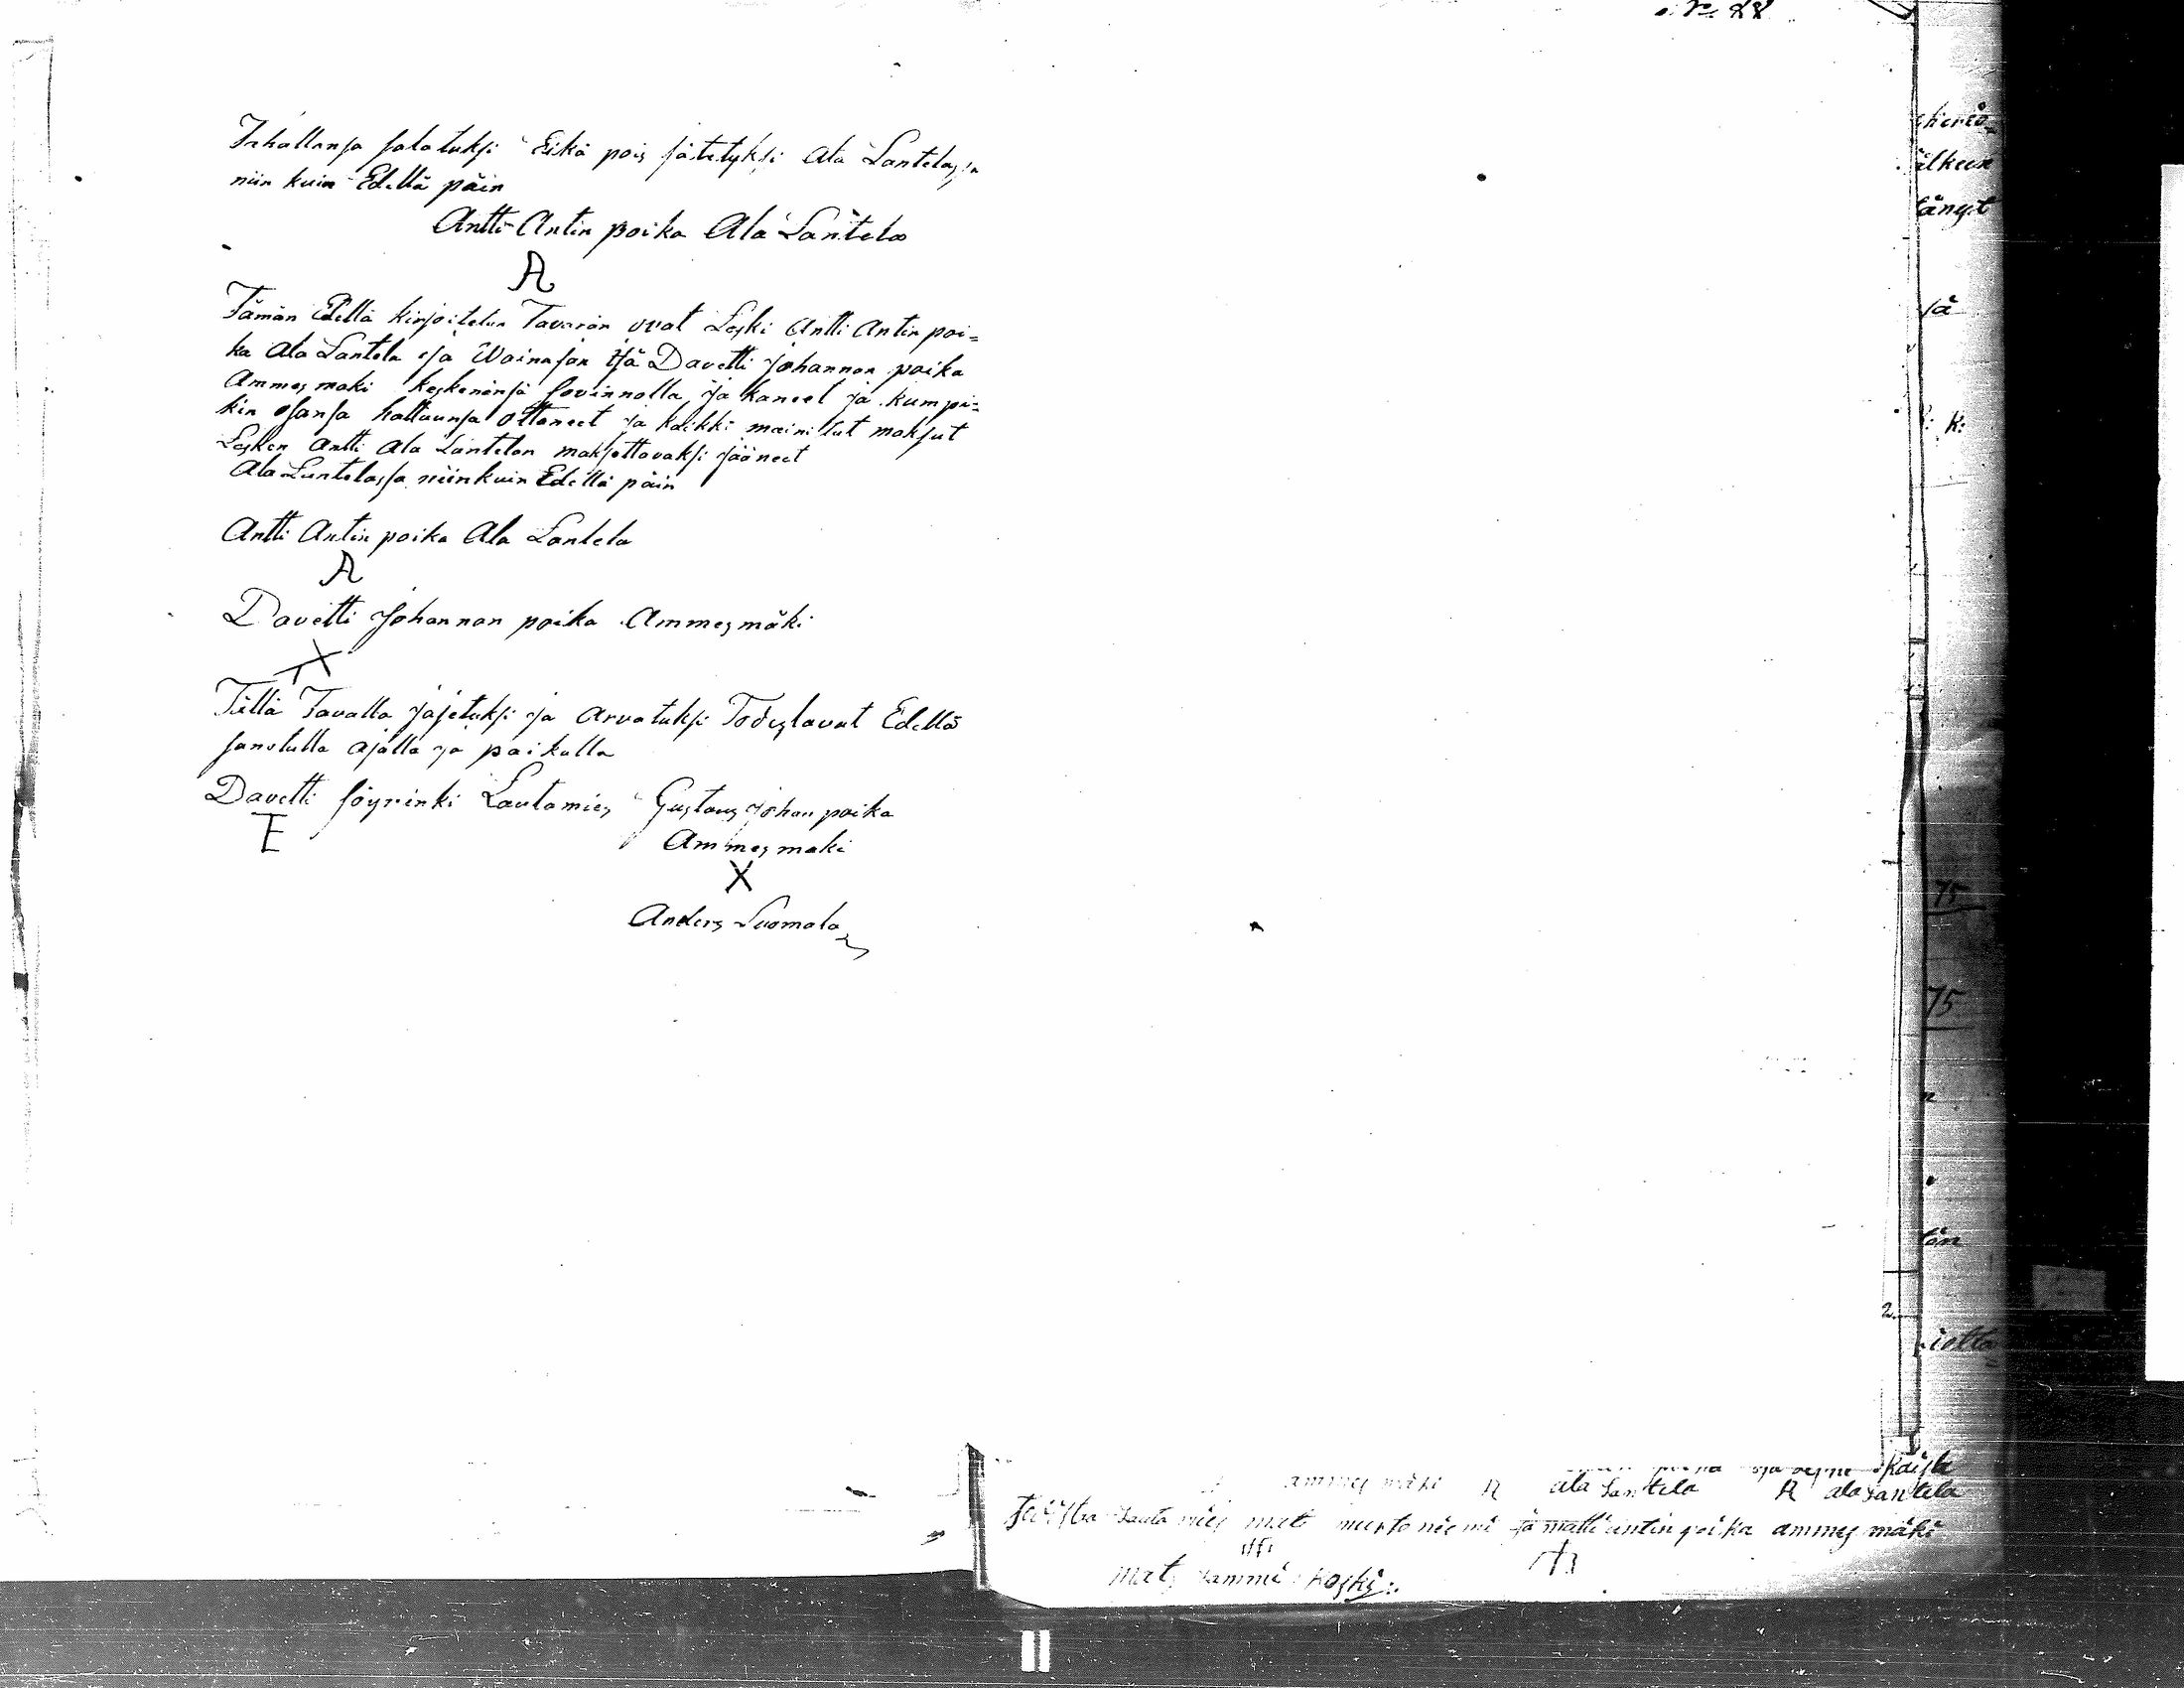 No 28
Tahallansa salatuksi Eikä pois jätetyksi Ala Lantelassa
niin kuin Edellä päin
Antti Antin poika Ala Lantela
A
Tämän Edellä kirjoitetun Tavaran ovat Leski Antti Antin poi=
ka Ala Lantela ja Wainajan Isä Davetti Johannan poika
Ammesmäki keskenänsä sovinnolla, ja kaneet ja kumpi=
kin osansa haltuunsa ottaneet ja kaikki mainitut maksut
Lesken Antti Ala Lantelan maksettavaksi jääneet
Ala Lantelassa niinkuin Edellä päin
Antti Antin poika Ala Lantela
A
Davetti Johannan poika Ammesmäki
X
Tällä Tavalla jajetuksi ja Arvatuksi Todistavat Edellä
sanotulla ajalla ja paikalla
Davetti Söyrinki Lautamies Gustavs Johan poika
E Ammesmaki
X
Anders Suomala
älkeen
tänyt
sä
k:
75
75
tän
2
ammes mäki A ala Lantela A ala Lantela
lauta mies mats niemi ja matti antin poika ammes mäki
mats koski